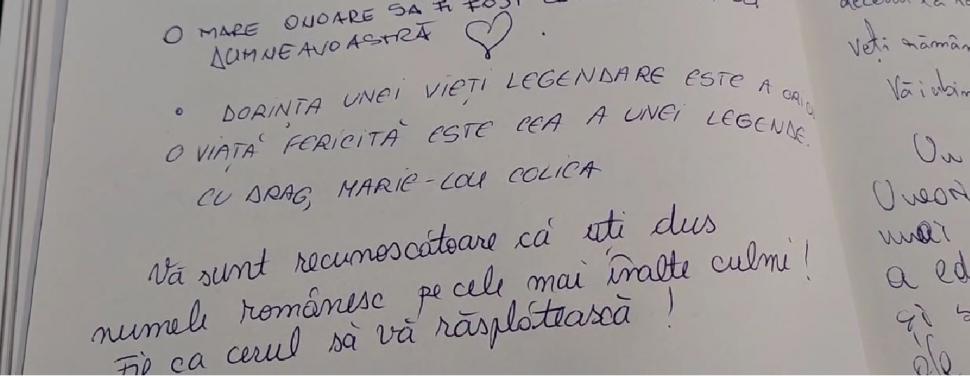 O MARE ONOARE SA FI FOST
DUMNEAVOASTRĂ
• DORINȚA UNEI VIEȚI LEGENDARE ESTE A
O VIAȚĂ FERICITĂ ESTE CEA A UNEI LEGENDE.
CU DRAG, MARIE-LOU COLICA
Vă sunt recunoscătoare că ați dus
numele românesc pe cele mai înalte culmi!
Fie ca cerul să vă răsplătească!
Veți
Vă iubim
mai
a ed
și